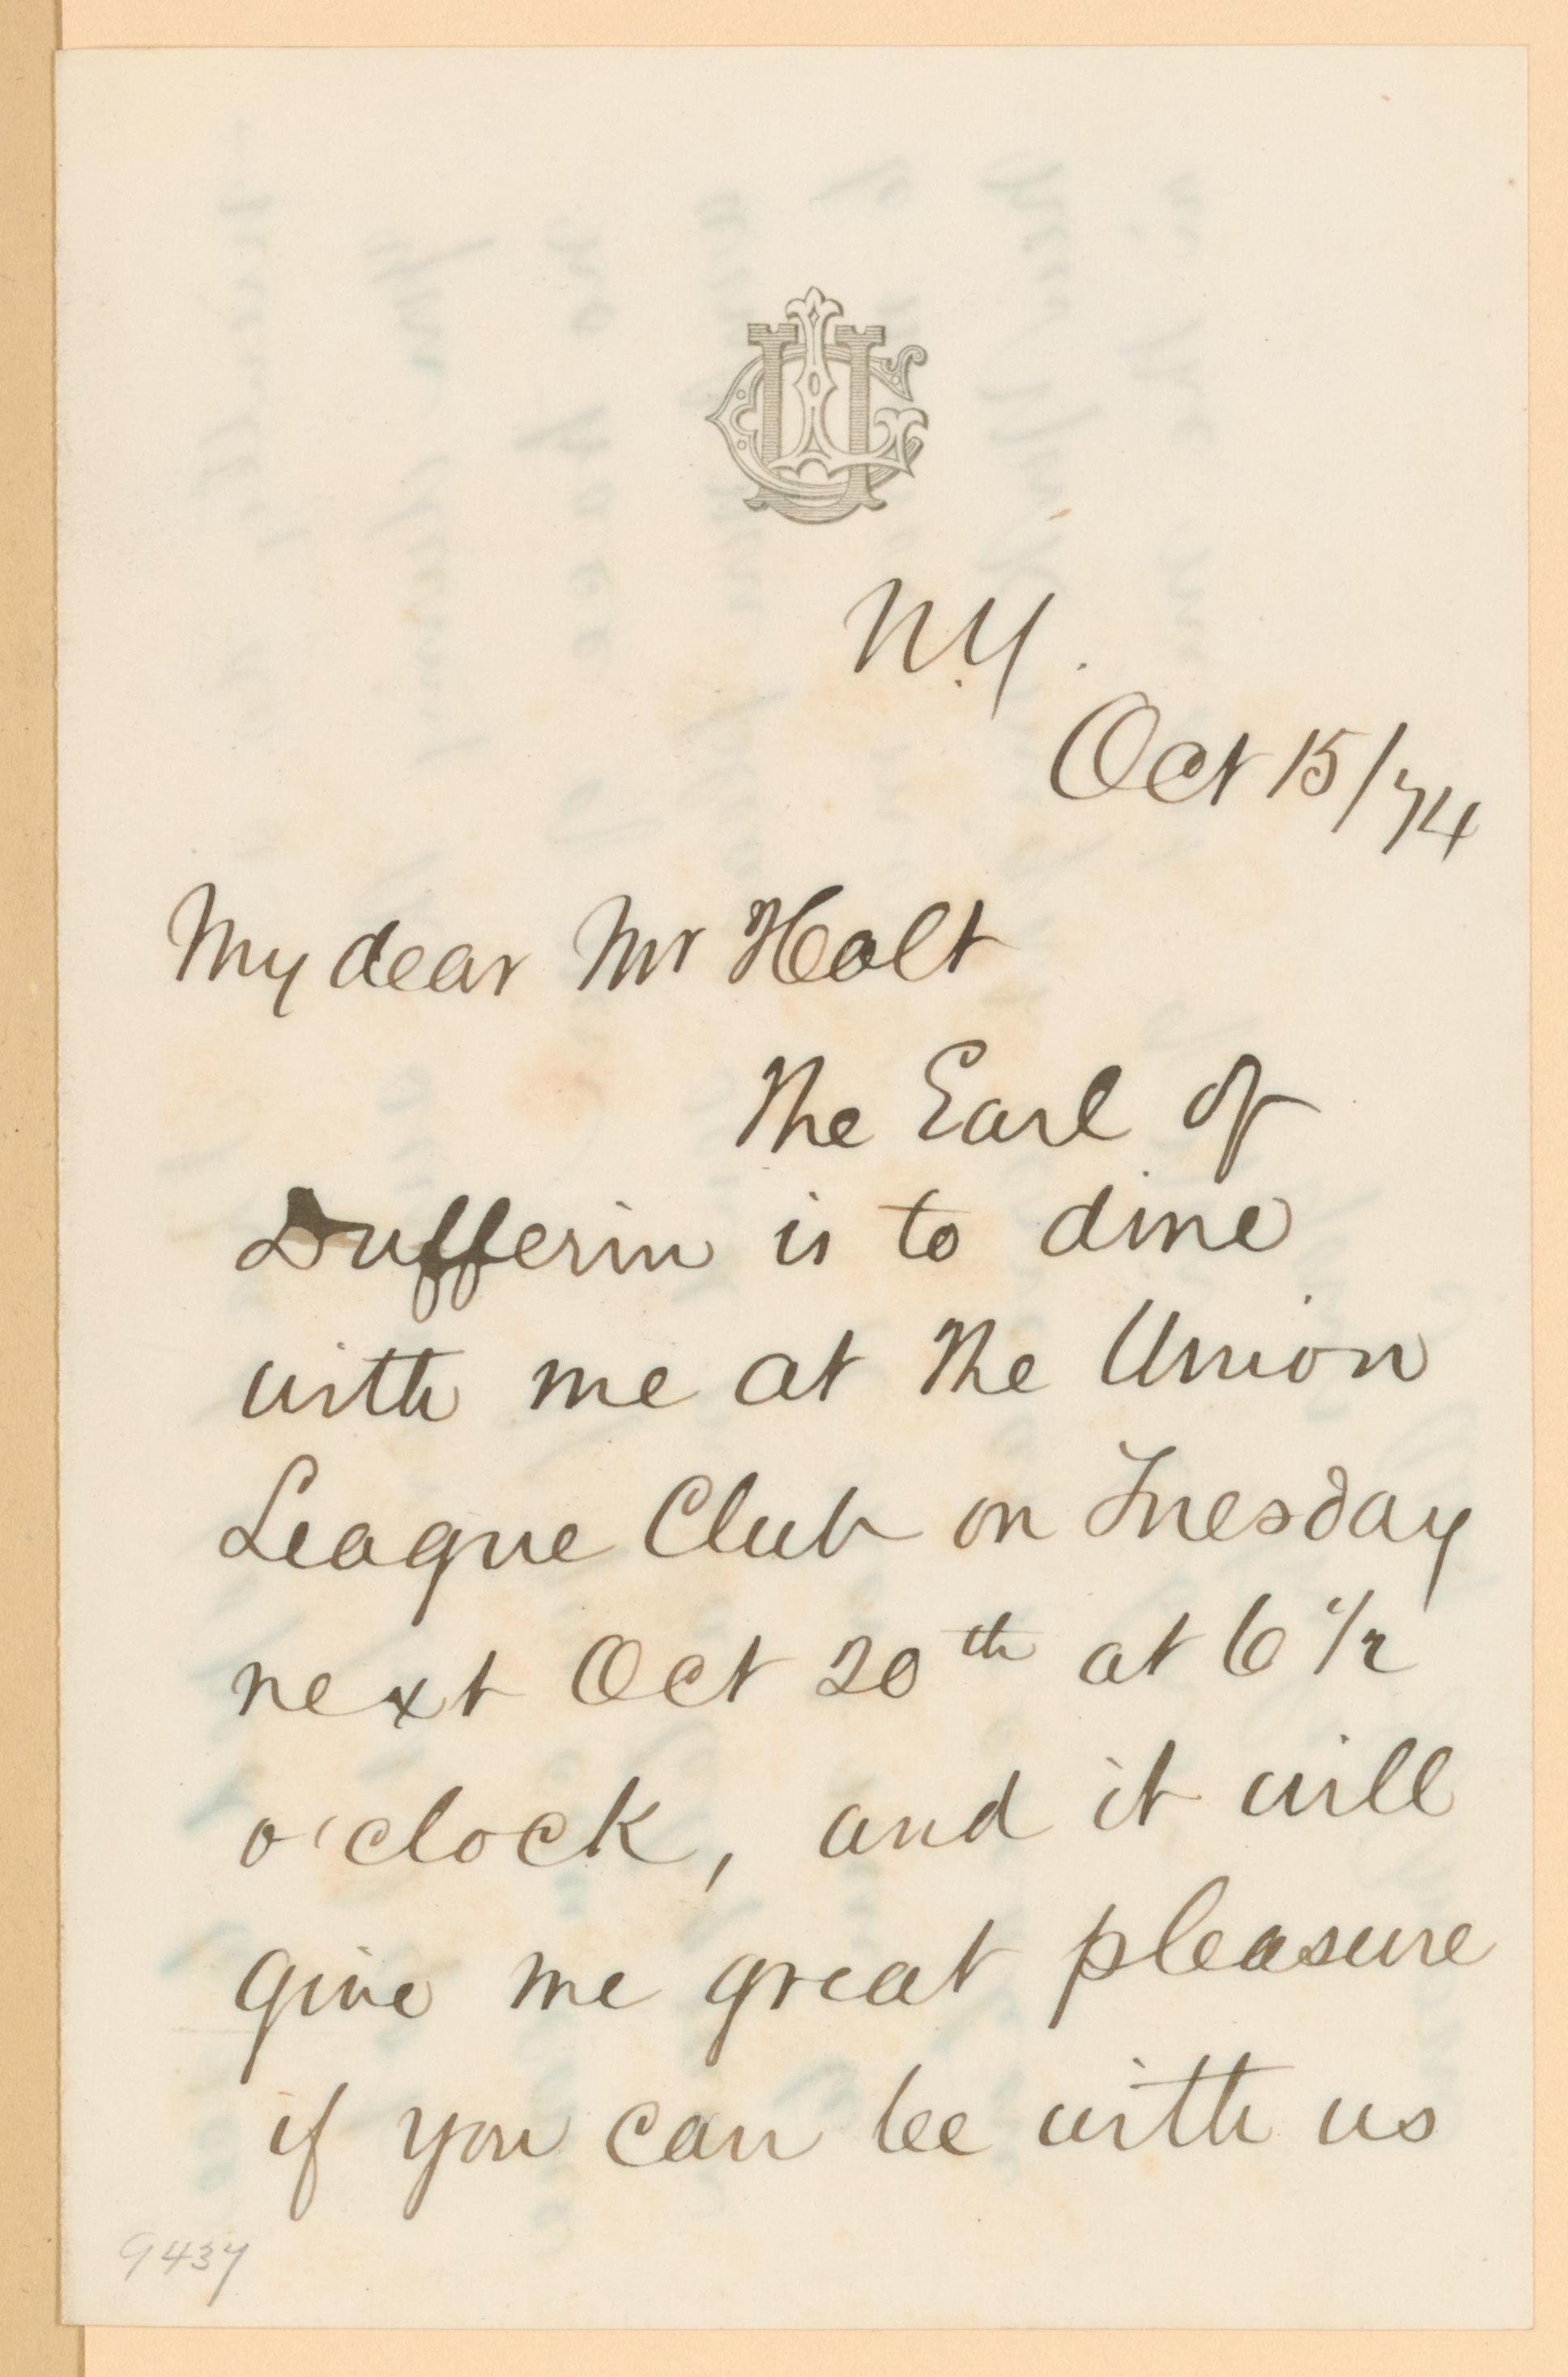 N.Y.
Oct 15/74
My dear Mr Holt
The Earl of
Dufferin is to dine
with me at the Union
League Club on Tuesday
next Oct 20th at 6 1/2
o'clock, and it will
give me great pleasure
if you can be with us
9437